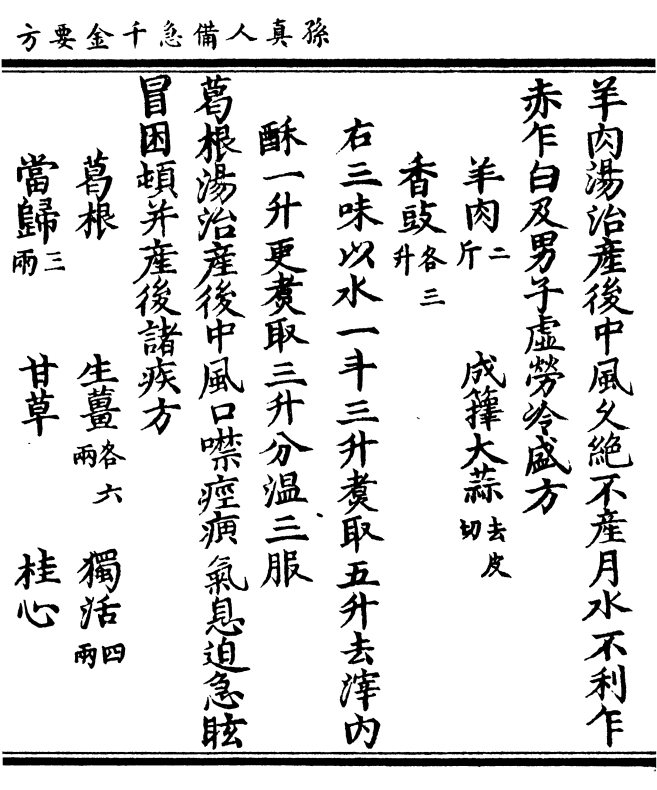 孫真人備急千金要方
羊肉湯治產後中風久絕不產月水不利乍
赤乍白及男子虛勞冷盛方
羊肉二斤 成籜大蒜去皮切
香豉各三升
右三味以水一斗三升煑取五升去滓內
酥一升更煑取三升分溫三服
葛根湯治產後中風口噤痙痾氣息迫急眩
冒困頓并產後諸疾方
葛根 生薑各六兩 獨活四兩
當歸三兩 甘草 桂心